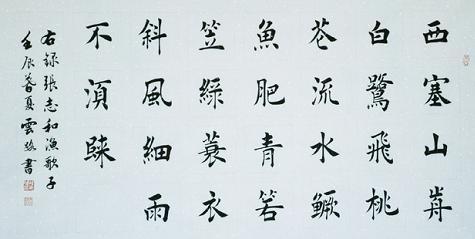 西塞山歬
白鷺飛桃
花流水鱖
魚肥青箬
笠綠蓑衣
斜風細雨
不須歸
右録張志和漁歌子
壬辰暮夏雲書